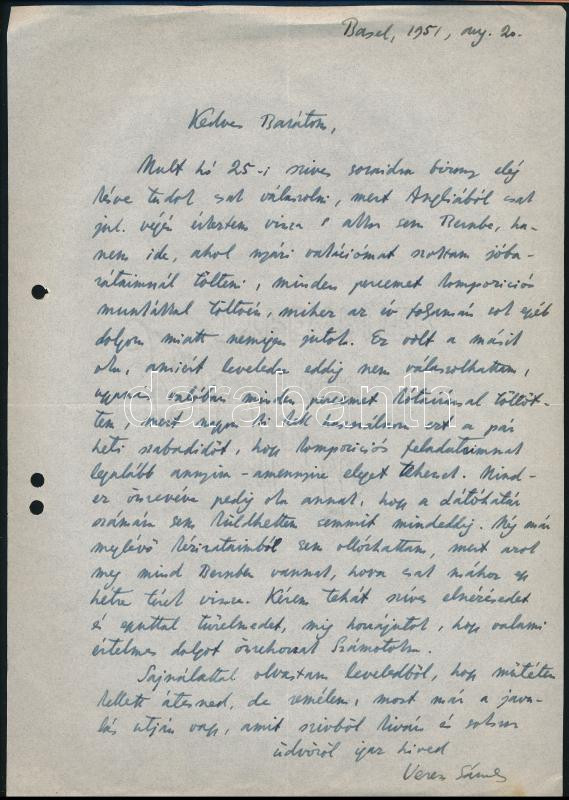 Basel, 1951, aug. 20.
Kedves Barátom,
Mult hó 25-i szives soraidra bizony elég
késve tudok csak válaszolni, mert Angliából csak
jul. végén érkeztem vissza s akkor sem Bernbe, ha-
nem ide, ahol nyári vakációmat szoktam jóba-
rátaimnál tölteni, minden percemet kompoziciós
munkákkal töltvén, mihez az év folyamán sok egyéb
dolgom miatt nemigen jutok. Ez volt a másik
oka, amiért leveledre eddig nem válaszolhattam,
ugyanis valóban minden percemet kótaírással töltöt-
tem, mert nagyon ki kell használnom ezt a pár
heti szabadidőt, hogy kompoziciós feladataimnak
legalább annyira-amennyire eleget tehessek. Mind-
ez összevéve pedig oka annak, hogy a Látóhatár
számára sem küldhettem semmit mindeddig. Még már
meglévő kézirataimból sem ollózhattam, mert azok
meg mind Bernben vannak, hova csak mához egy
hétre térek vissza. Kérem tehát szíves elnézésedet
és egyuttal türelmedet, míg hozzájutok, hogy valami
értelmes dolgot összehozzak Számotokra.
Sajnálattal olvastam leveledből, hogy műtéten
kellett átesned, de remélem, most már a javu-
lás utján vagy, amit szivből kivánok és sokszor
üdvözöl igaz hived
Veress Sándor
darabanth